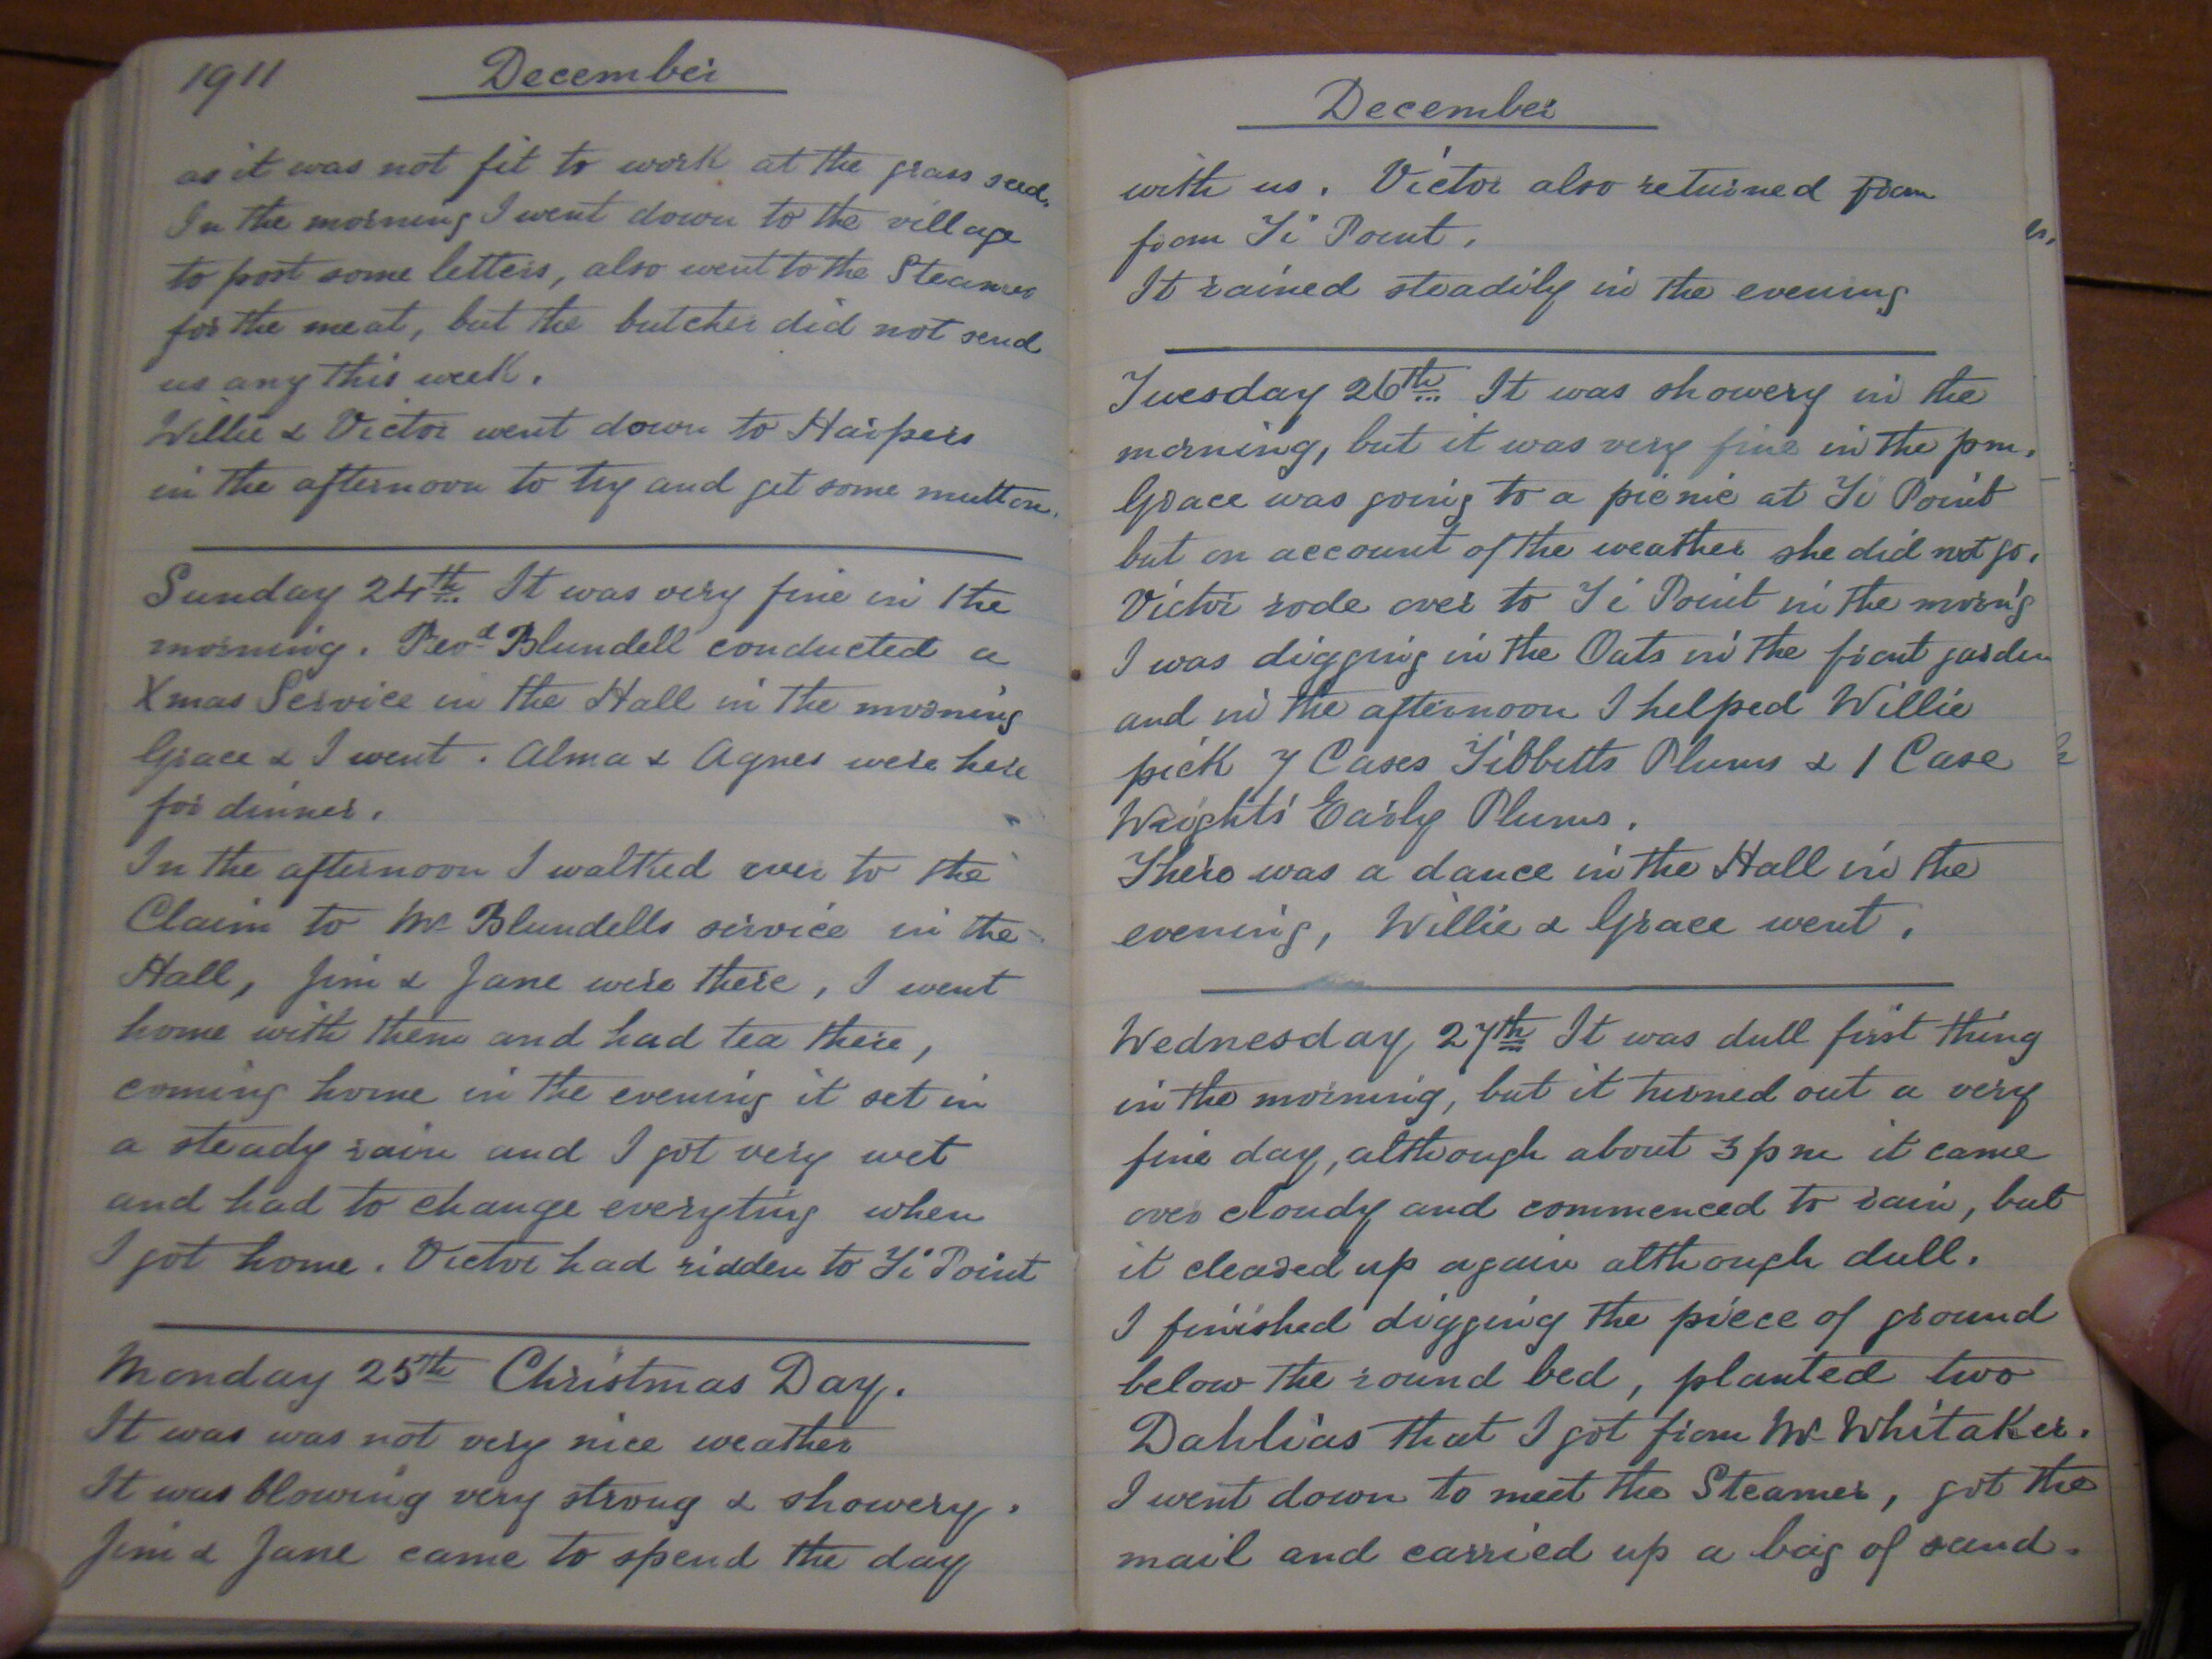 1911 December
as it was not fit to work at the grass seed.
In the morning I went down to the village
to post some letters, also went to the Steamer
for the meat, but the butcher did not send
us any this week.
Willie & Victor went down to Harpers
in the afternoon to try and get some mutton.
Sunday 24th It was very fine in the
morning. Revd Blundell conducted a
Xmas Service in the Hall in the morning
Grace & I went. Alma & Agnes were here
for dinner.
In the afternoon I walked over to the
Claim to Mr Blundells service in the
Hall, Jim & Jane were there, I went
home with them and had tea there,
coming home in the evening it set in
a steady rain and I got very wet
and had to change everyting when
I got home. Victor had ridden to Ti Point
Monday 25th Christmas Day.
It was was not very nice weather
It was blowing very strong & showery.
Jim & Jane came to spend the day
December
with us. Victor also returned from
from Ti Point.
It rained steadily in the evening
Tuesday 26th It was showery in the
morning, but it was very fine in the pm.
Grace was going to a picnic at Ti Point
but on account of the weather she did not go.
Victor rode over to Ti Point in the morn'g
I was digging in the Oats in the front garden
and in the afternoon I helped Willie
pick 7 Cases Tibbitts Plums & 1 Case
Wrights Early Plums.
There was a dance in the Hall in the
evening, Willie & Grace went.
Wednesday 27th It was dull first thing
in the morning, but it turned out a very
fine day, although about 3 pm it came
over cloudy and commenced to rain, but
it cleared up again although dull.
I finished digging the piece of ground
below the round bed, planted two
Dahlias that I got from Mr Whitaker.
I went down to meet the Steamer, got the
mail and carried up a bag of sand.